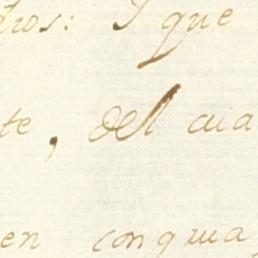 dros: Y que
te, del cua
en conqua